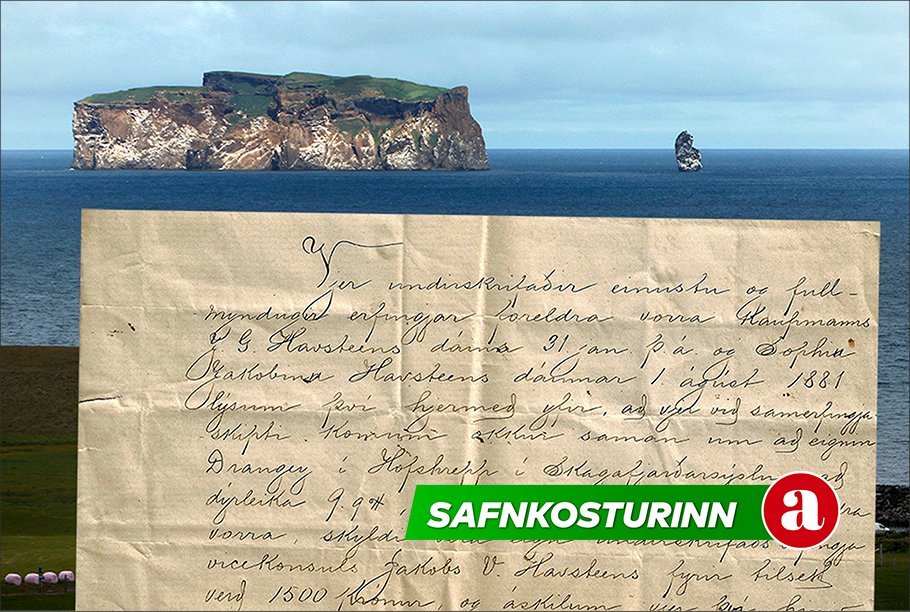 Vjer undirskrifaðir einustu og full-
myndugir erfingjar foreldra vorra Kaupmanns
J. G. Havsteens dáinn 31 jan. þ. á. og Sophiu
Jakobinu Havsteens dáinnar 1. ágúst 1881
lýsum því hjermeð yfir, að vjer við samerfingja
skipti komum okkur saman um að eignin
Drangey í Hofshrepp í Skagafjarðarsýslu að
dýrleika
vorra, skyldi vera eign undirskrifaðs
vicekonsuls Jakobs V. Havsteens fyrir tilsett
verð 1500 krónur, og áskilum vjer því
SAFNKOSTURINN a